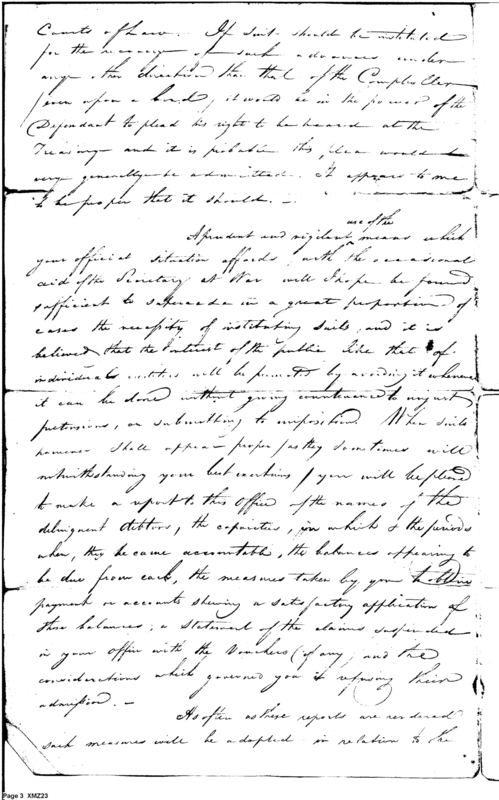 Courts of Law. If suit should be instituted
for the recovery of such advances under
any other direction than that of the Comptroller
(even upon a bond) it would be in the power of the
Defendant to plead his right to be heard at the
Treasury and it is probable this plea would
very generally be admitted. It appears to me
to be proper that it should. —
A prudent and vigilant use of the means which
your official situation affords with the occasional
aid of the Secretary at War will I hope be found
sufficient to supercede in a great proportion of
cases the necessity of instituting suits, and it is
believed that the interest of the public like that of
individuals will be promoted by avoiding it whenever
it can be done without giving countenance to unjust
pretensions, or submitting to imposition. When suits
however shall appear proper (as they sometimes will
notwithstanding your best exertions) you will be pleased
to make a report to this Office of the names of the
delinquent debtors, the capacities, in which & the periods
when, they became accountable, the balances appearing to
be due from each, the measures taken by you to obtain
payment or accounts shewing a satisfactory application of
those balances; a statement of the claims suspended
in your office with the Vouchers (if any) and the
considerations which governed you in refusing their
admission. —
As often as these reports are rendered
such measures will be adopted in relation to the
Page 3 XMZ23